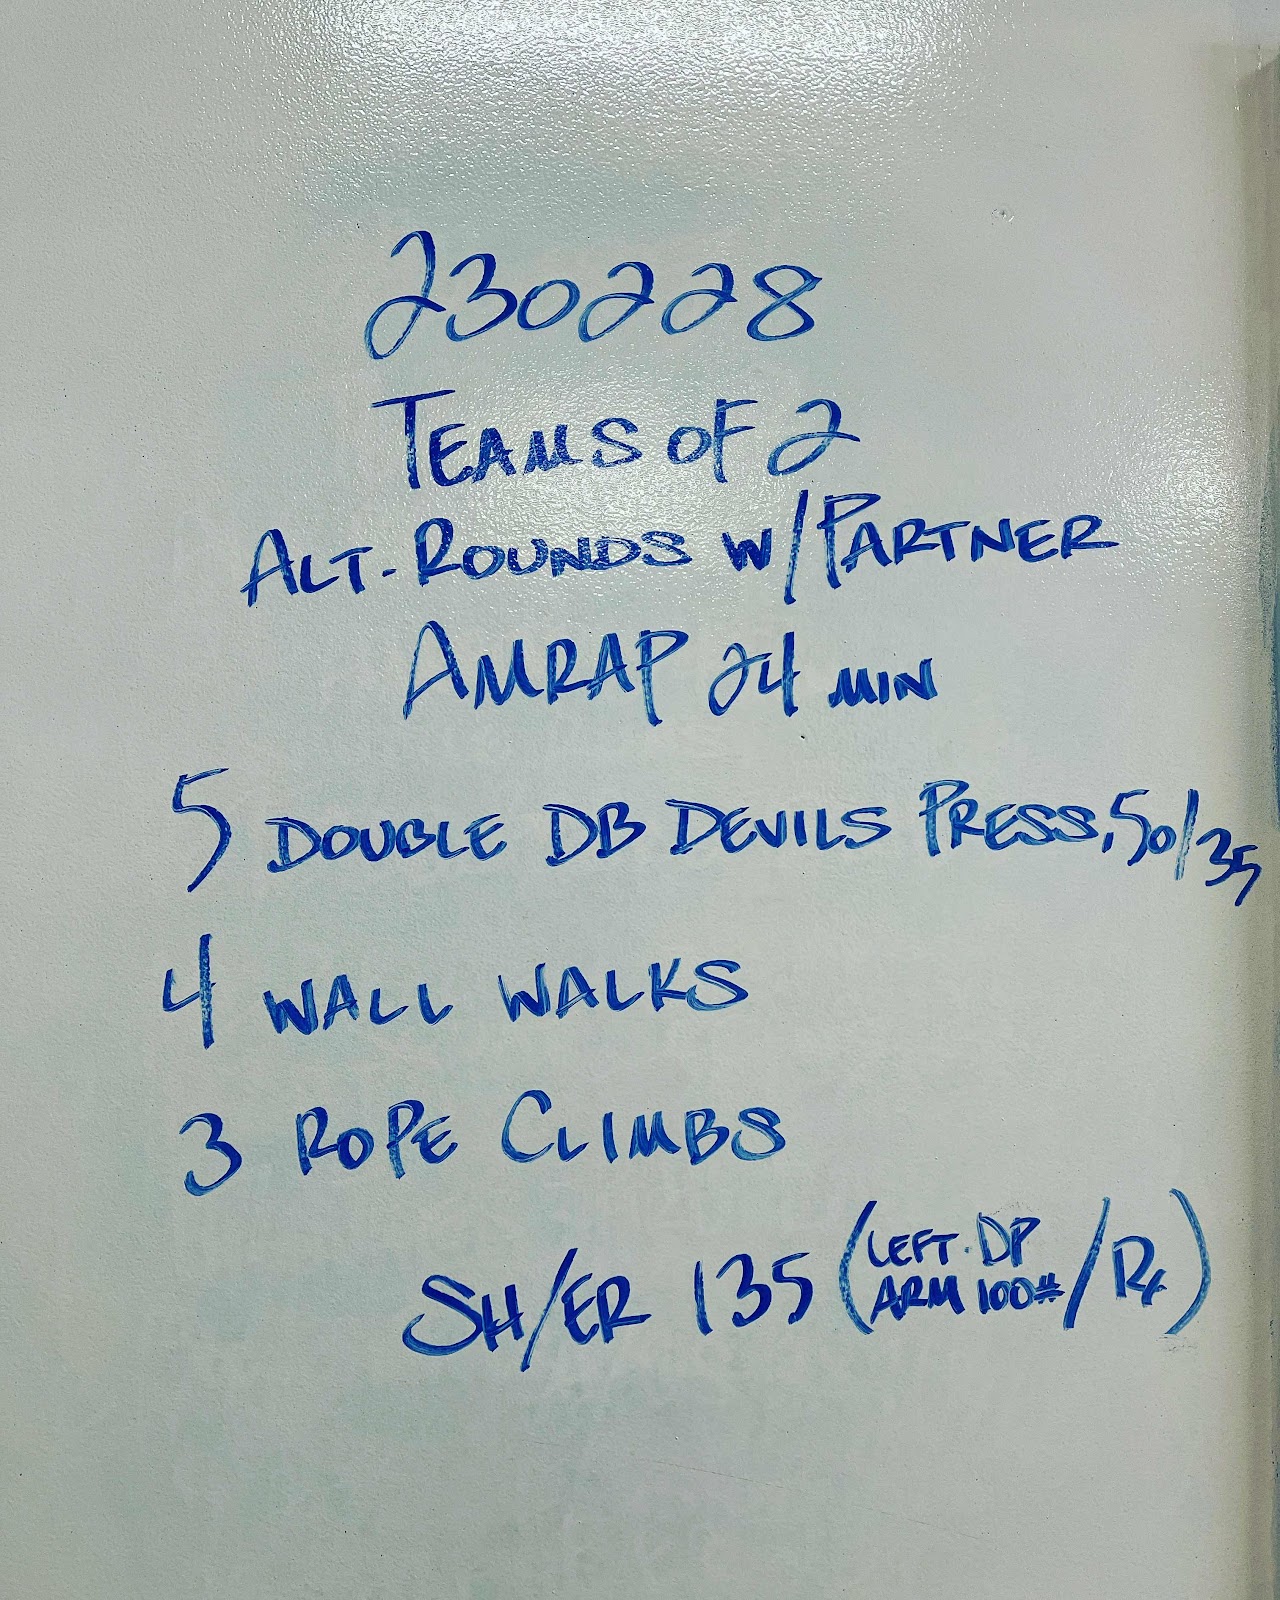 230228
TEAMS OF 2
ALT. ROUNDS W/PARTNER
AMRAP 24 MIN
5 DOUBLE DB DEVILS PRESS, 50/35
4 WALL WALKS
3 ROPE CLIMBS
SH/ER 135 (LEFT ARM DP 100#/RX)